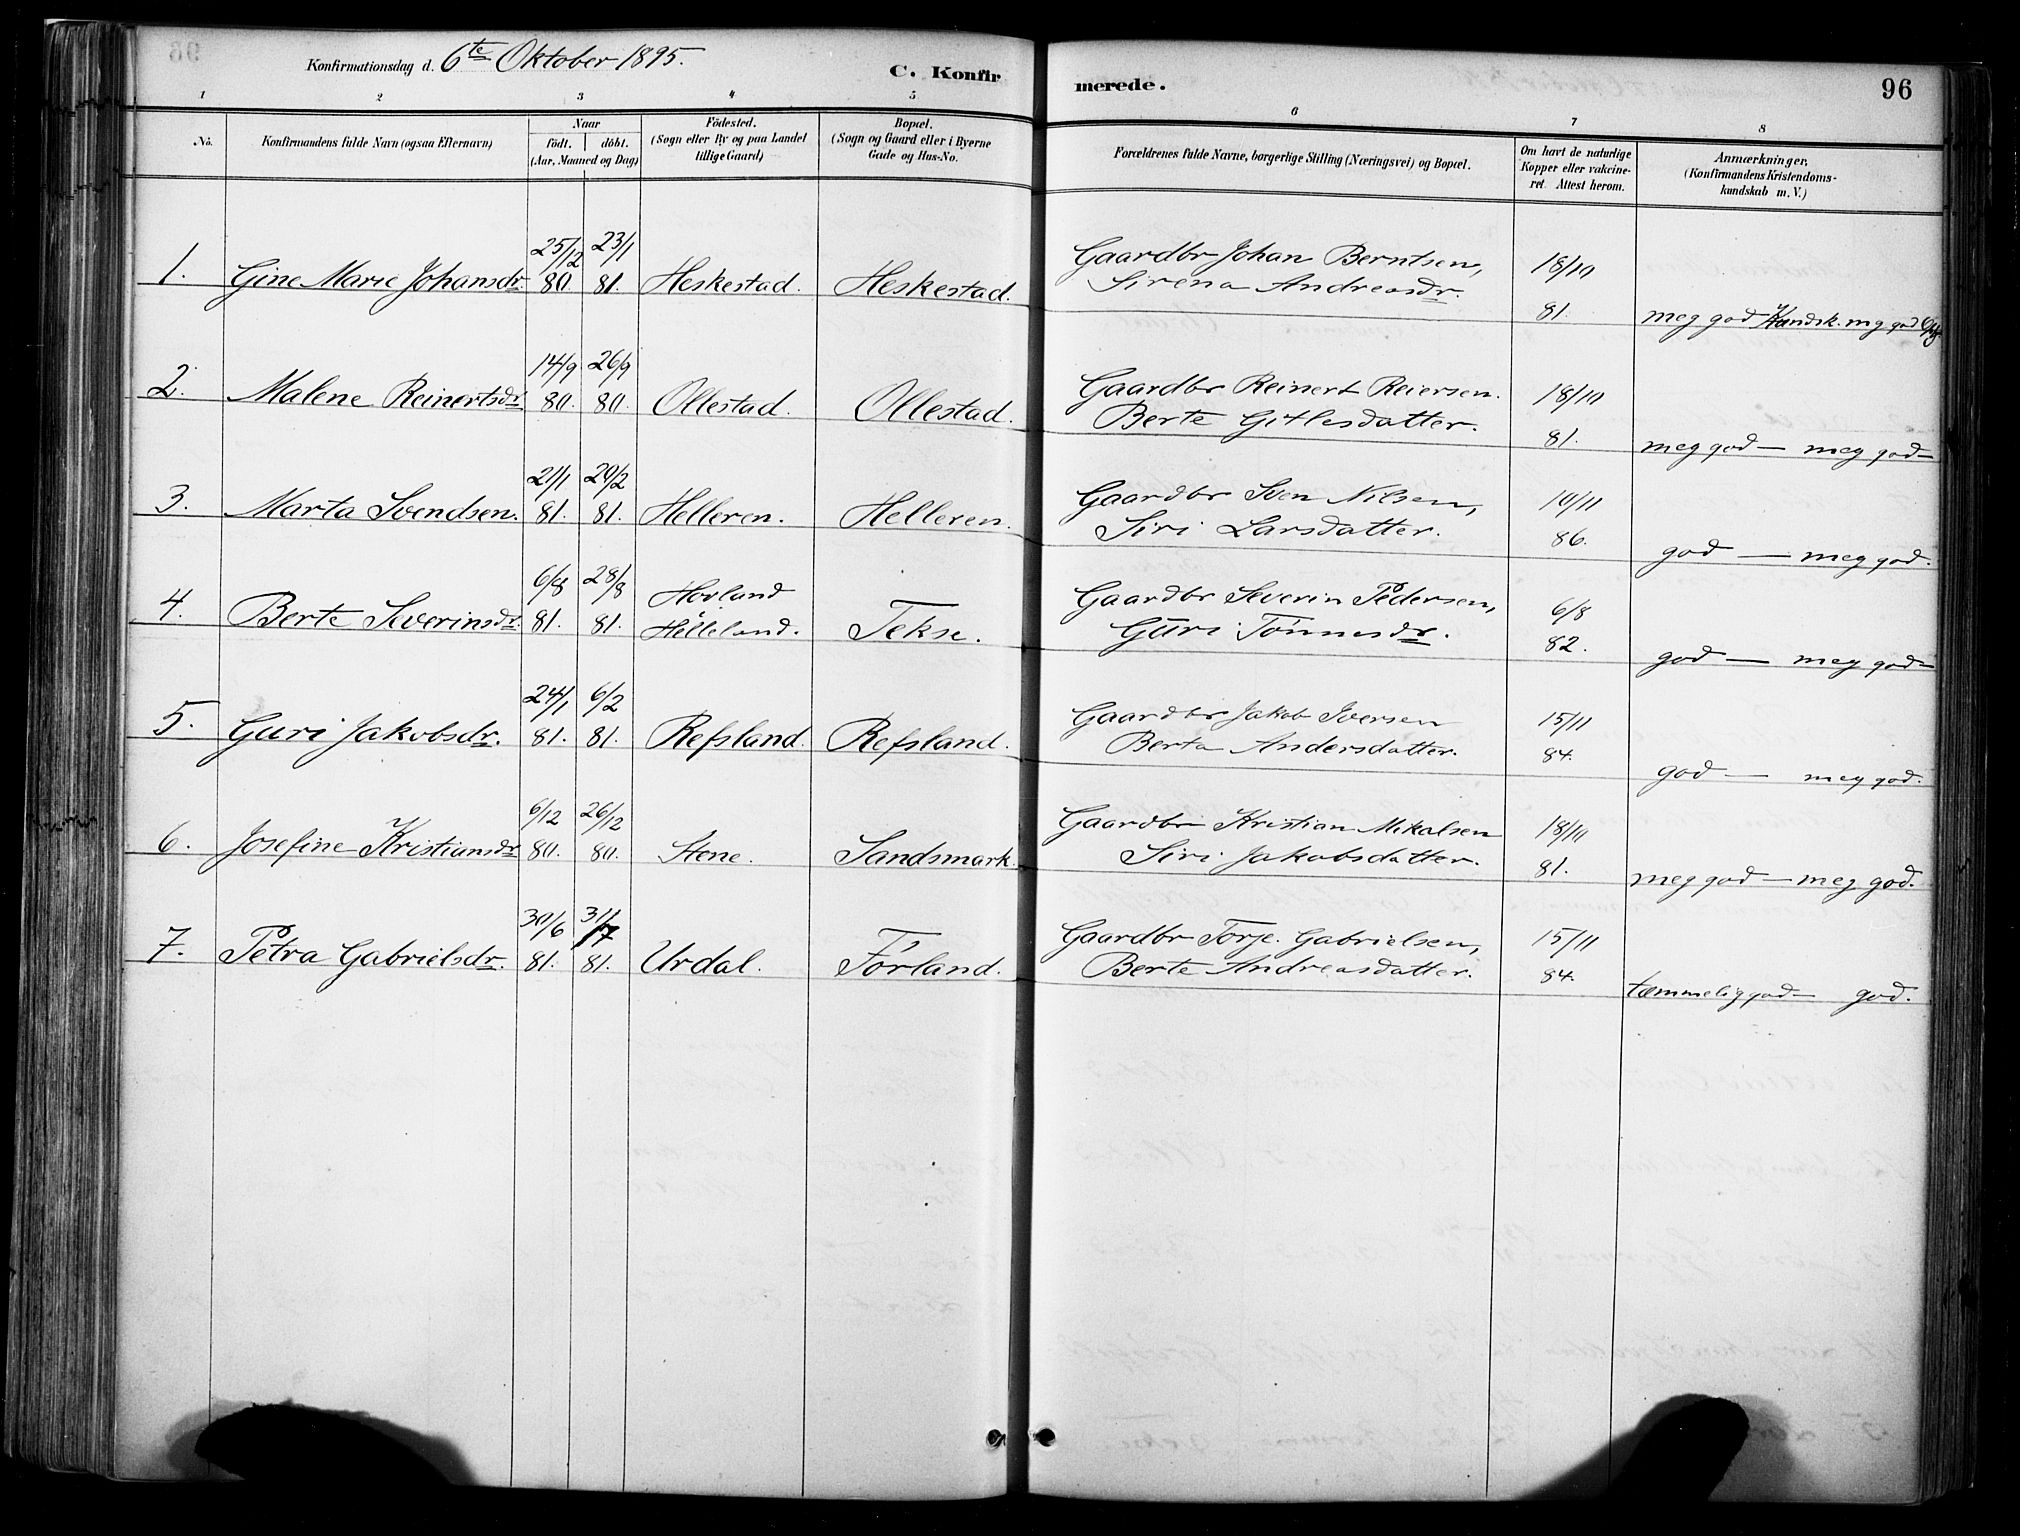 Konfirmationsdag d. 6te Oktober 1895.
C. Konfirmerede.
96
1 2 3 4 5 6 7 8
No.
Konfirmandens fulde Navn (ogsaa Efternavn)
Naar
födt. döbt.
(Aar, Maaned og Dag)
Födested.
(Sogn eller By og paa Landet
tillige Gaard)
Bopæl.
(Sogn og Gaard eller i Byerne
Gade og Hus-No.
Forældrenes fulde Navne, borgerlige Stilling (Næringsvei) og Bopæl.
Om havt de naturlige
Kopper eller vakcine-
ret. Attest herom.
Anmærkninger,
(Konfirmandens Kristendoms-
kundskab m. V.)
25/12 23/1 Gaardbr Johan Berntsen, 18/10
1. Gine Marie Johansdr. 80. 81. Heskestad. Heskestad. Sirena Andreasdr. 81. meg god Kundsk. mg god
14/9 26/9 Gaardbr Reinert Reiersen. 18/10
2. Malene Reinertsdr 80. 80. Ollestad. Ollestad. Berte Gitlesdatter. 81. meg god — meg god —
21/1 20/2 Gaardbr Sven Nilsen, 10/11
3. Marta Svendsen. 81. 81. Helleren. Helleren. Siri Larsdatter. 86. god — meg god.
6/8 28/8 Hovland Gaardbr Severin Pedersen, 6/8
4. Berte Severinsdr. 81. 81. Helleland. Tekse. Guri Tönnesdr. 82. god — meg god —
24/1 6/2 Gaardbr Jakob Iversen 15/11
5. Guri Jakobsdr. 81. 81. Refsland. Refsland. Berta Andersdatter. 84. god — meg god.
6/12 26/12 Gaardbr Kristian Mikalsen 18/10
6. Josefine Kristiansdr 80. 80. Stene. Sandsmark. Siri Jakobsdatter. 81. meg god — meg god.
30/6 31/7 Gaardbr Torje Gabrielsen, 15/11
7. Petra Gabrielsdr. 81. 81. Urdal. Förland. Berte Andreasdatter. 84. temmelig god — god.